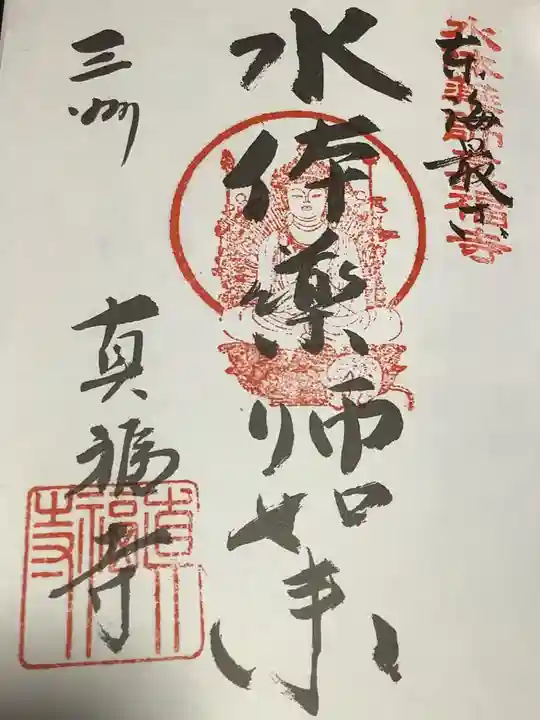 東海最古
水体薬師如来
三州
真福寺
真福寺